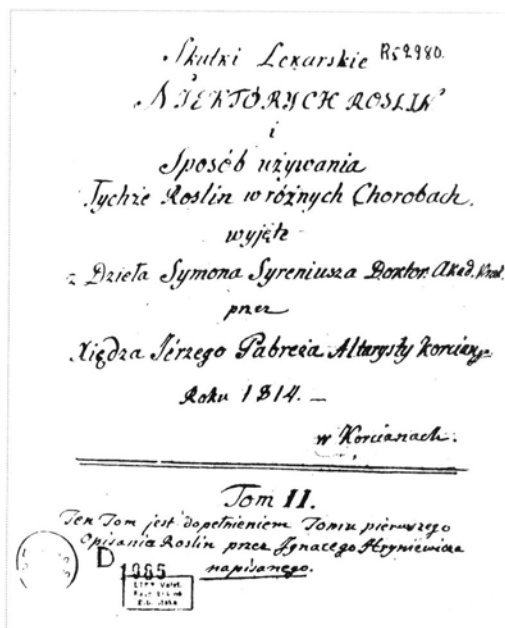 Skutki Lekarskie Rs 2980.
NIEKTÓRYCH ROSLIN
i
Sposób używania
Tychże Roslin w różnych Chorobach,
wyjęte
z Dzieła Symona Syreniusza Doktor. Akad. Krak.
przez
Xiędza Jérzego Pabreża Altarysty Korcians.
Roku 1814. —
w Korcianach.
Tom II.
Ten Tom jest dopełnieniem Tomu pierwszego
Opisania Roslin przez Ignacego Hryniewicza
napisanego.
D
1985